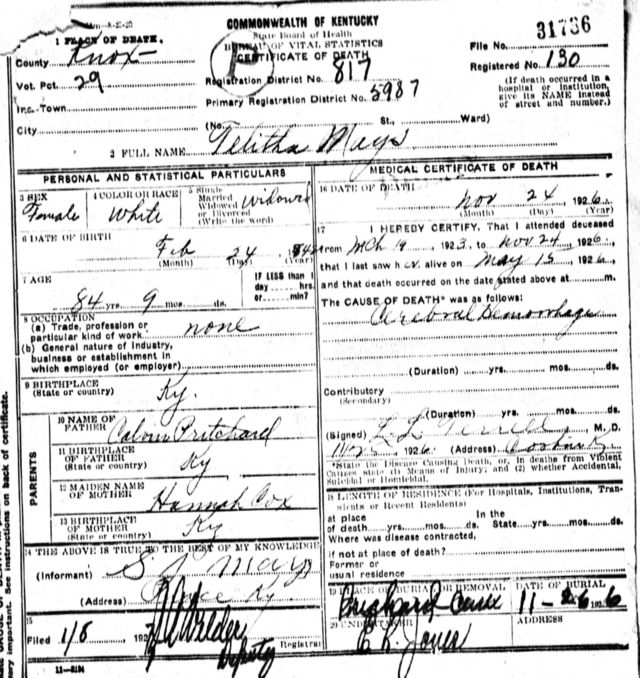 COMMONWEALTH OF KENTUCKY
State Board of Health
BUREAU OF VITAL STATISTICS
CERTIFICATE OF DEATH
File No. 31736
Registered No. 130
(If death occurred in a hospital or institution, give its NAME instead of street and number.)
1 PLACE OF DEATH.
County Knox
Vot. Pct. 29
Inc. Town
City
Registration District No. 817
Primary Registration District No. 5987
(No. St., Ward)
2 FULL NAME Telitha Mays
PERSONAL AND STATISTICAL PARTICULARS
3 SEX Female
4 COLOR OR RACE White
5 Single Married Widowed or Divorced (Write the word) Widowed
6 DATE OF BIRTH
Feb 24
(Month) (Day) (Year)
7 AGE
84 yrs. 9 mos. ds.
IF LESS than 1 day hrs. or min?
8 OCCUPATION
(a) Trade, profession or particular kind of work none
(b) General nature of industry, business or establishment in which employed (or employer)
9 BIRTHPLACE
(State or country) Ky.
PARENTS
10 NAME OF FATHER Pritchard
11 BIRTHPLACE OF FATHER
(State or country) Ky
12 MAIDEN NAME OF MOTHER Hannah Cox
13 BIRTHPLACE OF MOTHER
(State or country) Ky
14 THE ABOVE IS TRUE TO THE BEST OF MY KNOWLEDGE
(Informant) S Mays
(Address) Ky
15
Filed 1/8 192 Wilder
Deputy Registrar
11-21M
MEDICAL CERTIFICATE OF DEATH
16 DATE OF DEATH Nov 24, 1926
(Month) (Day) (Year)
17 I HEREBY CERTIFY, That I attended deceased
from Mch 19 1923, to Nov 24, 1926
that I last saw her alive on May 15, 1926
and that death occurred on the date stated above at m.
The CAUSE OF DEATH* was as follows:
Cerebral Hemorrhage
(Duration) yrs. mos. ds.
Contributory
(Secondary)
(Duration) yrs. mos. ds.
(Signed) L L Terrell, M. D.
1926 (Address)
*State the Disease Causing Death, or, in deaths from Violent Causes state (1) Means of Injury; and (2) whether Accidental, Suicidal or Homicidal.
18 LENGTH OF RESIDENCE (For Hospitals, Institutions, Transients or Recent Residents)
at place of death yrs. mos. ds. State yrs. mos. ds.
Where was disease contracted,
if not at place of death?
Former or
usual residence
19 PLACE OF BURIAL OR REMOVAL
DATE OF BURIAL
11-26 1926
20 UNDERTAKER
E. L. Jones
ADDRESS
See instructions on back of certificate.